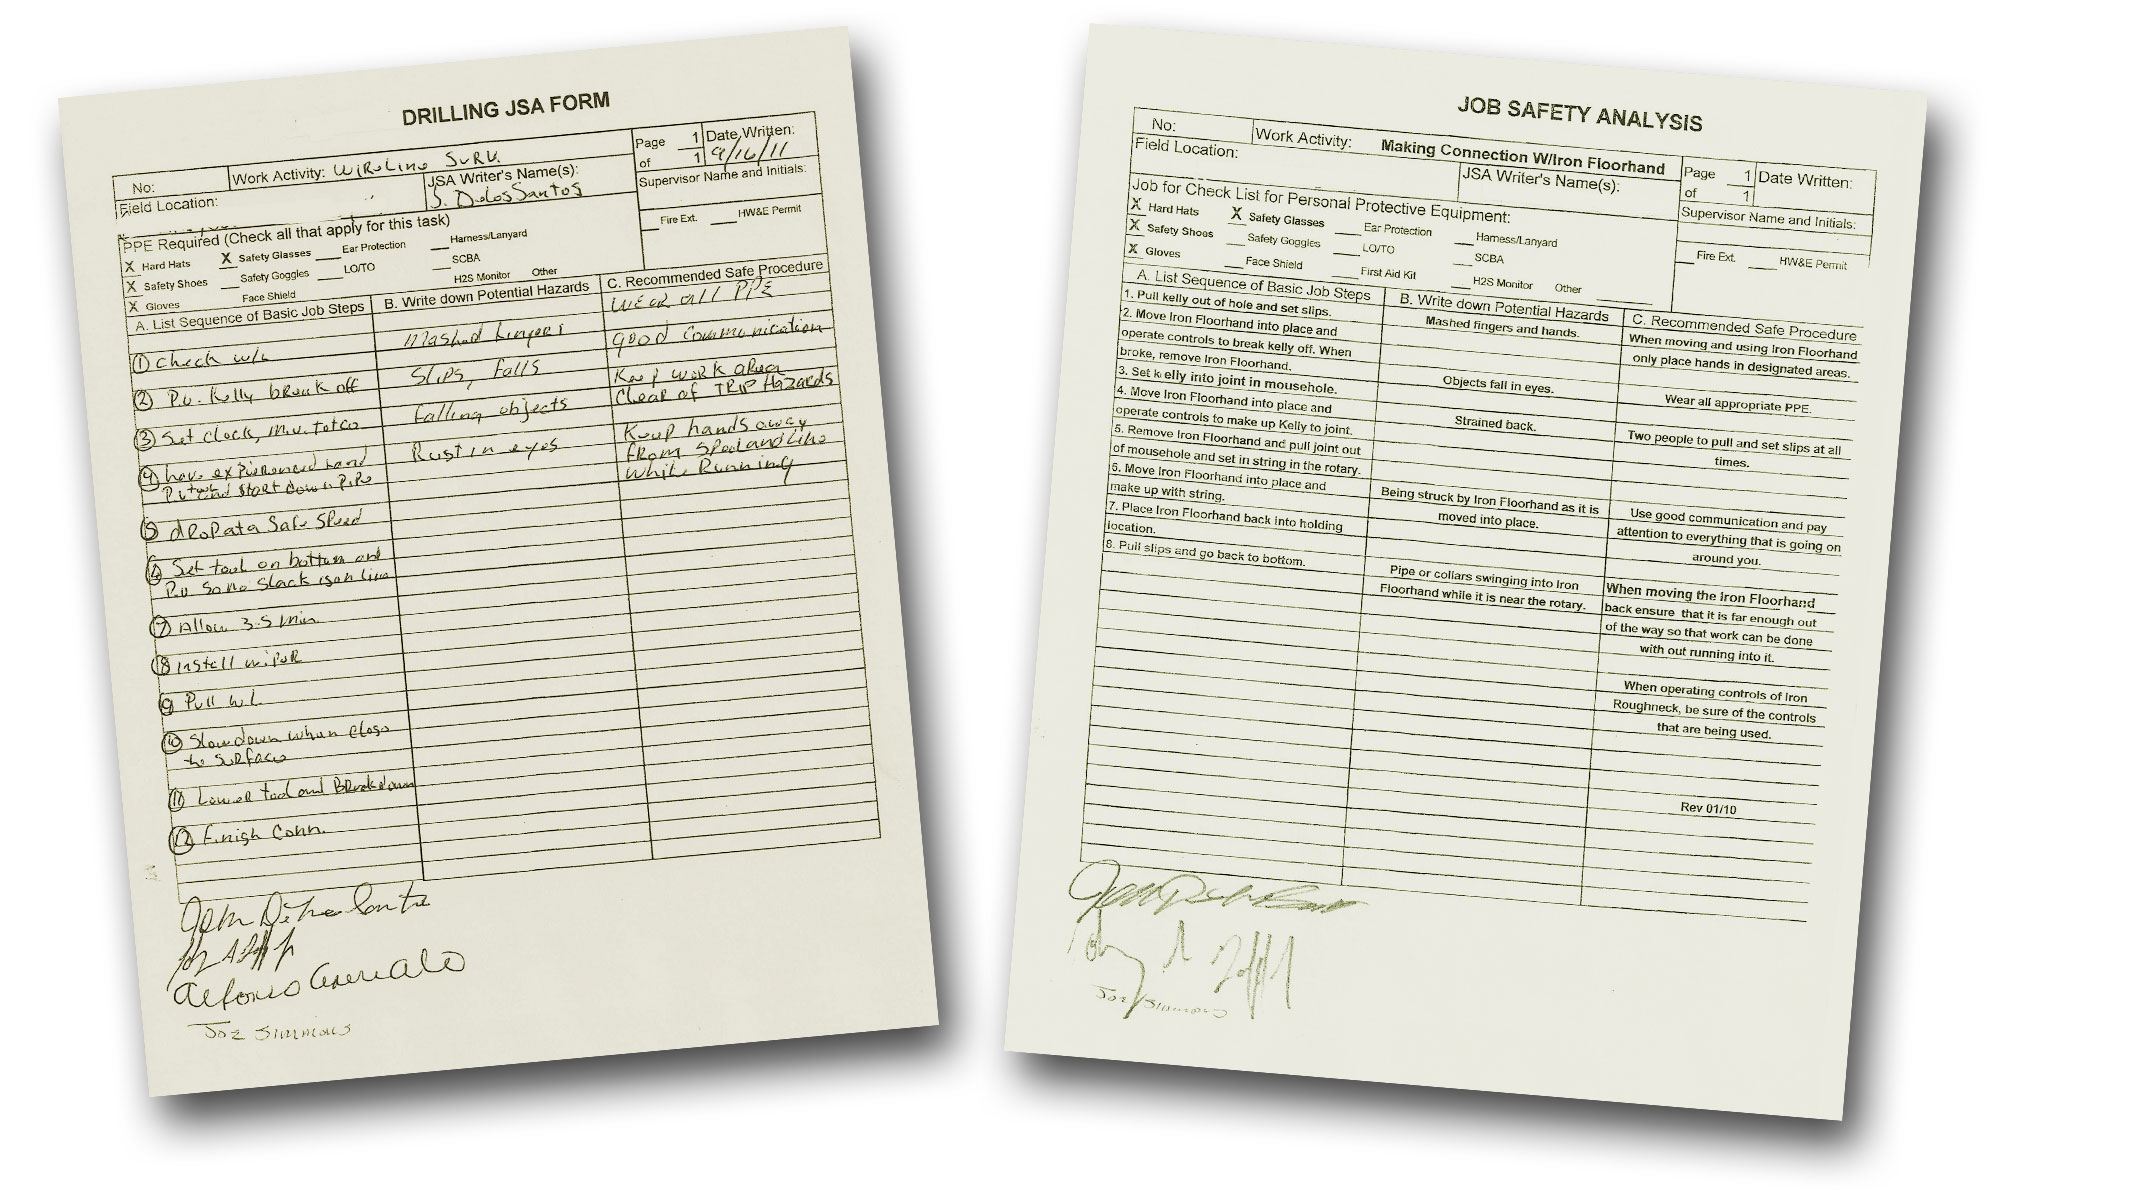 DRILLING JSA FORM
No:
Work Activity: Wireline Surv.
Page 1
of 1
Date Written:
9/16/11
Field Location:
JSA Writer's Name(s):
J. DelosSantos
Supervisor Name and Initials:
PPE Required (Check all that apply for this task)
X Hard Hats X Safety Glasses Ear Protection Harness/Lanyard Fire Ext. HW&E Permit
X Safety Shoes Safety Goggles LO/TO SCBA
X Gloves Face Shield H2S Monitor Other
A. List Sequence of Basic Job Steps
B. Write down Potential Hazards
C. Recommended Safe Procedure
① Check w/l
② P.u. Kelly break off
③ Set clock,
④ have experienced hand
P.u. and start down pipe
⑤ drop at a Safe Speed
⑥ Set tool on bottom and
P.u So no Slack is on line
⑦ Allow 3-5 Min.
⑧ install wiper
⑨ Pull w.l.
⑩ Slow down when close
to surface
⑪ Lower tool and Breakdown
⑫ Finish Conn.
Mashed fingers
Slips, falls
falling objects
Rust in eyes
Wear all PPE
good communication
Keep work area
Clear of TRIP Hazards
Keep hands away
from Spool and Line
while Running
Alfonso
Joe Simmons
JOB SAFETY ANALYSIS
No:
Work Activity: Making Connection W/Iron Floorhand
Page 1
of 1
Date Written:
Field Location:
JSA Writer's Name(s):
Supervisor Name and Initials:
Job for Check List for Personal Protective Equipment:
X Hard Hats X Safety Glasses Ear Protection Harness/Lanyard Fire Ext. HW&E Permit
X Safety Shoes Safety Goggles LO/TO SCBA
X Gloves Face Shield First Aid Kit H2S Monitor Other
A. List Sequence of Basic Job Steps
B. Write down Potential Hazards
C. Recommended Safe Procedure
1. Pull kelly out of hole and set slips.
2. Move Iron Floorhand into place and
operate controls to break kelly off. When
broke, remove Iron Floorhand.
3. Set kelly into joint in mousehole.
4. Move Iron Floorhand into place and
operate controls to make up Kelly to joint.
5. Remove Iron Floorhand and pull joint out
of mousehole and set in string in the rotary.
6. Move Iron Floorhand into place and
make up with string.
7. Place Iron Floorhand back into holding
location.
8. Pull slips and go back to bottom.
Mashed fingers and hands.
Objects fall in eyes.
Strained back.
Being struck by Iron Floorhand as it is
moved into place.
Pipe or collars swinging into Iron
Floorhand while it is near the rotary.
When moving and using Iron Floorhand
only place hands in designated areas.
Wear all appropriate PPE.
Two people to pull and set slips at all
times.
Use good communication and pay
attention to everything that is going on
around you.
When moving the Iron Floorhand
back ensure that it is far enough out
of the way so that work can be done
with out running into it.
When operating controls of Iron
Roughneck, be sure of the controls
that are being used.
Rev 01/10
Joe Simmons